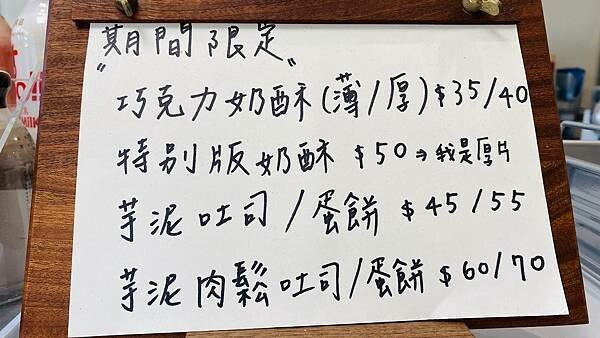 "期間限定"
巧克力奶酥(薄/厚)$35/40
特別版奶酥 $50→我是厚片
芋泥吐司/蛋餅 $45/55
芋泥肉鬆吐司/蛋餅 $60/70